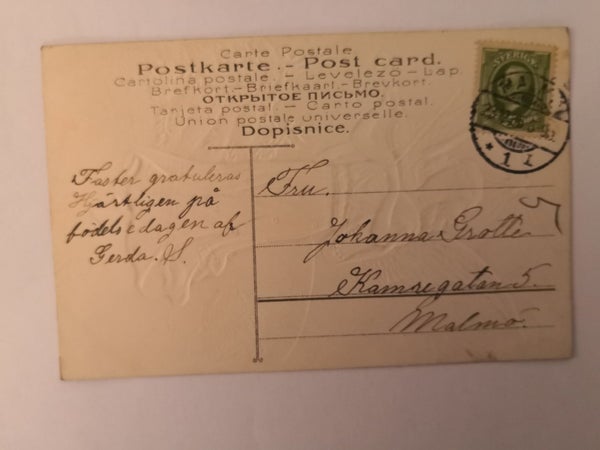 Carte Postale
Postkarte. - Post card.
Cartolina postale. - Levelező-Lap.
Brefkort.-Briefkaart.-Brevkort.
ОТКРЫТОЕ ПИСЬМО.
Tarjeta postal. - Carto postal.
Union postale universelle.
Dopisnice.
SVERIGE
1 1
Faster gratuleras
Hjärtligen på
födelsedagen af
Gerda. S.
Fru.
Johanna Grotte
Kamregatan 5.
Malmö.